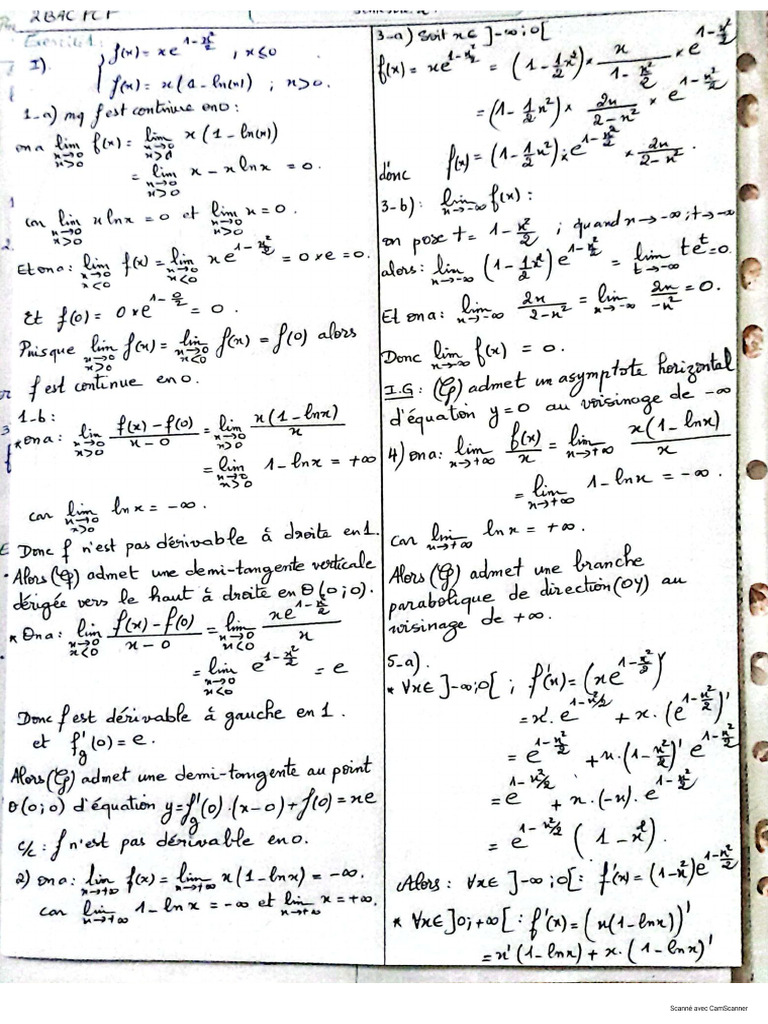 2BAC PCF
Exercice 1:
I). { f(x) = x e^{1-x²/2} , x ≤ 0
f(x) = x(1-ln(x)) ; x > 0.
1-a) mq f est continue en 0:
on a lim_{x→0, x>0} f(x) = lim_{x→0, x>0} x(1-ln(x))
= lim_{x→0, x>0} x - x ln x = 0.
car lim_{x→0, x>0} x ln x = 0 et lim_{x→0, x>0} x = 0.
Et on a: lim_{x→0, x<0} f(x) = lim_{x→0, x<0} x e^{1-x²/2} = 0 × e = 0.
Et f(0) = 0 × e^{1-0/2} = 0.
Puisque lim_{x→0, x>0} f(x) = lim_{x→0, x<0} f(x) = f(0) alors
f est continue en 0.
1-b:
* on a: lim_{x→0, x>0} (f(x)-f(0))/(x-0) = lim_{x→0, x>0} x(1-ln x)/x
= lim_{x→0, x>0} 1-ln x = +∞
car lim_{x→0, x>0} ln x = -∞.
Donc f n'est pas dérivable à droite en 1.
• Alors (Cf) admet une demi-tangente verticale
dérigée vers le haut à droite en O(0;0).
* On a: lim_{x→0, x<0} (f(x)-f(0))/(x-0) = lim_{x→0, x<0} x e^{1-x²/2}/x
= lim_{x→0, x<0} e^{1-x²/2} = e
Donc f est dérivable à gauche en 1.
et f'_g(0) = e.
Alors (Cf) admet une demi-tangente au point
O(0;0) d'équation y = f'_g(0).(x-0)+f(0) = xe
c/c: f n'est pas dérivable en 0.
2) on a: lim_{x→+∞} f(x) = lim_{x→+∞} x(1-ln x) = -∞.
car lim_{x→+∞} 1-ln x = -∞ et lim_{x→+∞} x = +∞.
3-a) Soit x ∈ ]-∞;0[
f(x) = x e^{1-x²/2} = (1-1/2 x²) × x/(1-x²/2) × e^{1-x²/2}
= (1-1/2 x²) × 2x/(2-x²) × e^{1-x²/2}
donc f(x) = (1-1/2 x²) . e^{1-x²/2} × 2x/(2-x²).
3-b): lim_{x→-∞} f(x):
on pose t = 1-x²/2 ; quand x→-∞; t→-∞
alors: lim_{x→-∞} (1-1/2 x²) e^{1-x²/2} = lim_{t→-∞} t e^t = 0.
Et on a: lim_{x→-∞} 2x/(2-x²) = lim_{x→-∞} 2x/-x² = 0.
Donc lim_{x→-∞} f(x) = 0.
I.G: (Cf) admet un asymptote horizontal
d'équation y=0 au voisinage de -∞
4) on a: lim_{x→+∞} f(x)/x = lim_{x→+∞} x(1-ln x)/x
= lim_{x→+∞} 1-ln x = -∞.
car lim_{x→+∞} ln x = +∞.
Alors (Cf) admet une branche
parabolique de direction (OY) au
voisinage de +∞.
5-a).
* ∀x∈ ]-∞;0[ ; f'(x) = (x e^{1-x²/2})'
= x'. e^{1-x²/2} + x.(e^{1-x²/2})'
= e^{1-x²/2} + x.(1-x²/2)' e^{1-x²/2}
= e^{1-x²/2} + x.(-x). e^{1-x²/2}
= e^{1-x²/2} (1-x²).
Alors: ∀x∈ ]-∞;0[: f'(x) = (1-x²)e^{1-x²/2}
* ∀x∈ ]0;+∞[ : f'(x) = (x(1-ln x))'
= x'(1-ln x) + x.(1-ln x)'
Scanné avec CamScanner